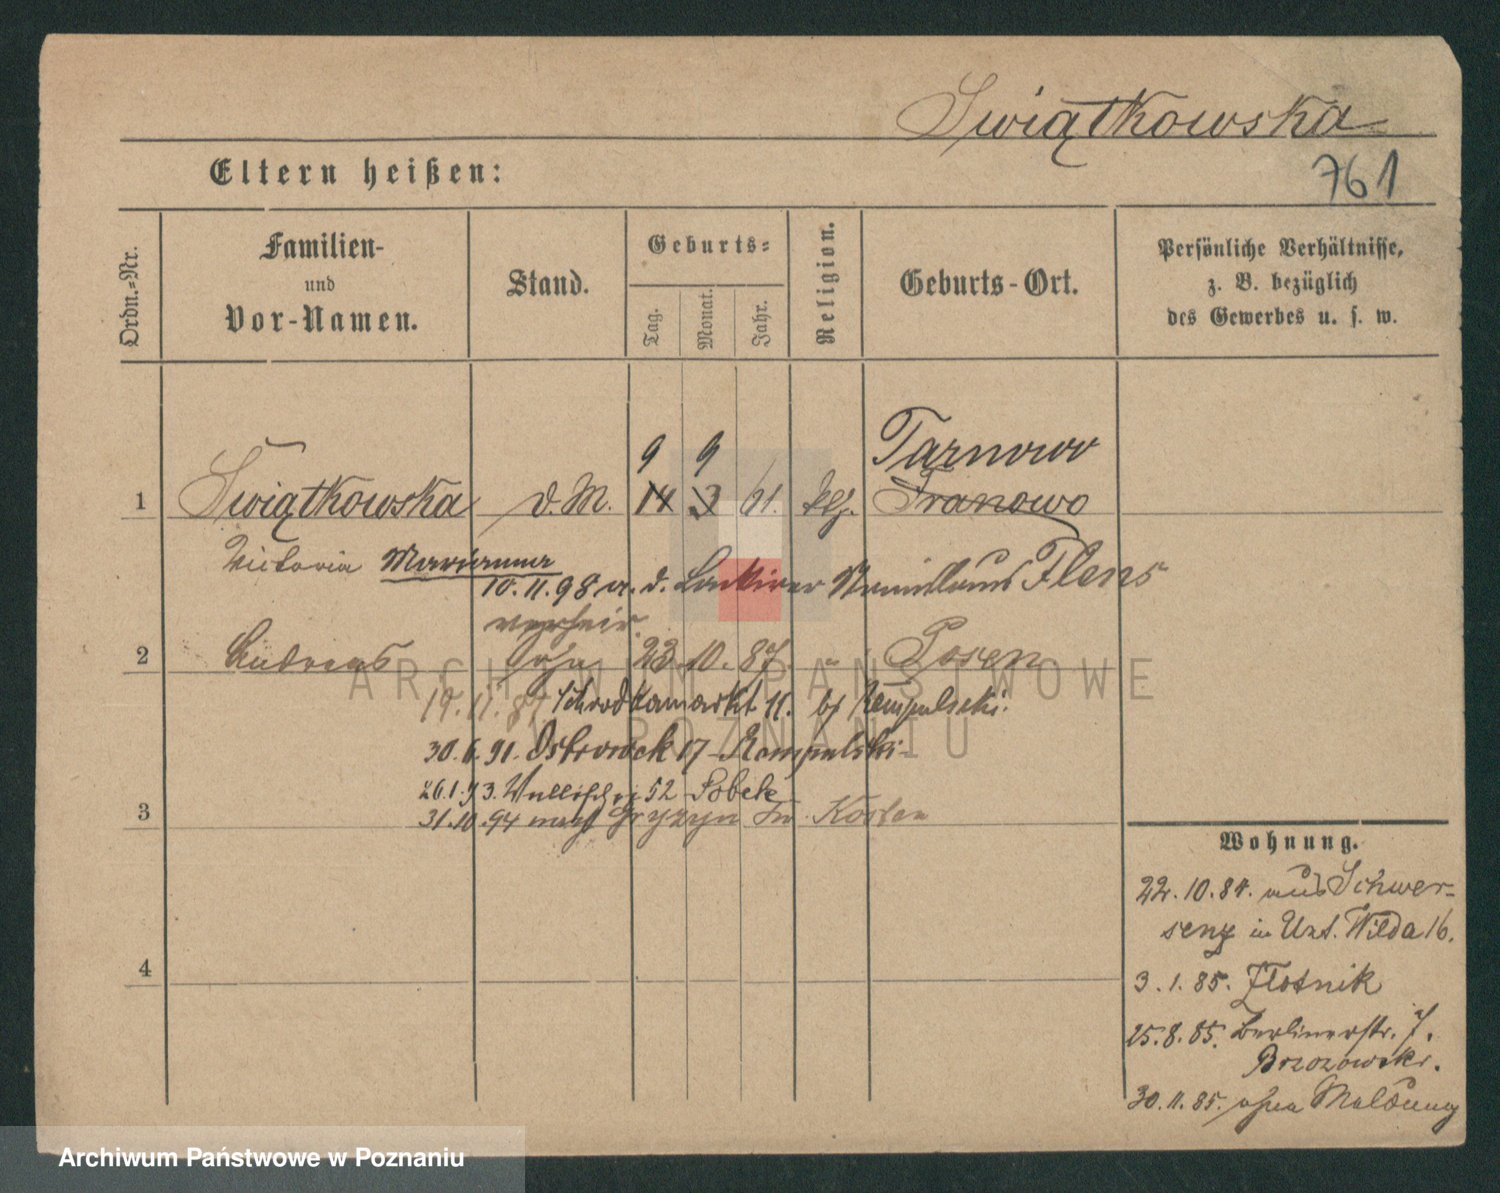 Świątkowska
761
Eltern heißen:
Ordn.-Nr.
Familien-
und
Vor-Namen.
Stand.
Geburts-
Tag.
Monat.
Jahr.
Religion.
Geburts-Ort.
Persönliche Verhältnisse,
z. B. bezüglich
des Gewerbes u. s. w.
9 9 Tarnowo
1 Świątkowska d. M. 14 3 61. Franowo
Victoria Marianna
10.11.98 a. d. Stanislaus Flens
verheir.
2 Andreas 23. 10. 87. " Posen
19.11.87 Schrodkamarkt 11. bei Rempulski.
30.6.91. Ostrowek 17 Rempulski
26.1.93. Wallischei 52 Sobek
3 31.10.94 nach Gryzyn Kr. Kosten
4
Wohnung.
22.10.84. aus Schwer-
senz in Unt. Wilda 16.
3.1.85. Zlotnik
25.8.85. Berlinerstr. 7.
Brzozowski.
30.11.85. ohne Meldung
ARCHIWUM PAŃSTWOWE
W POZNANIU
Archiwum Państwowe w Poznaniu